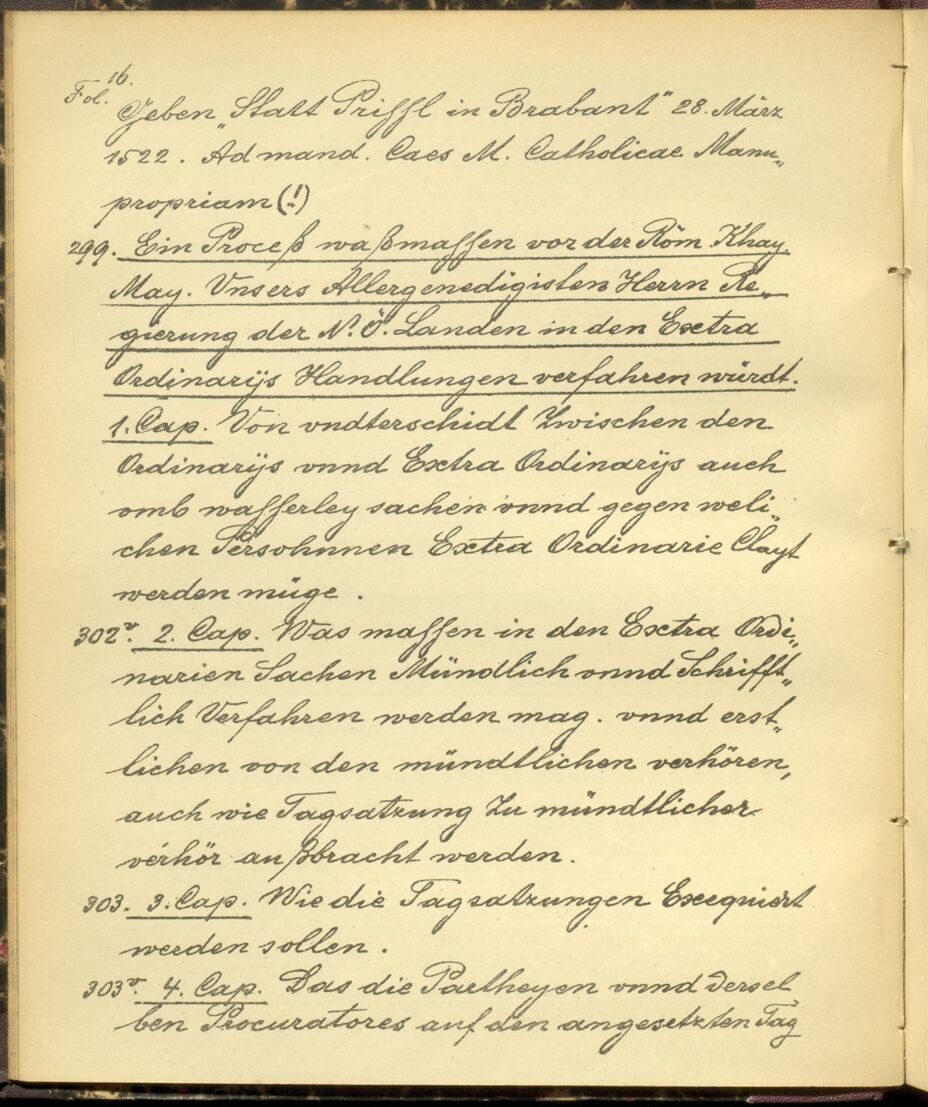 16.
Fol.
Geben „Statt Priffl in Brabant" 28. März
1522. Ad mand. Caes M. Catholicae Manu„
propriam (!)
299. Ein Proceß waßmassen vor der Röm. Khay.
May. Vnsers Allergenedigisten Herrn Re„
gierung der N. Ö. Landen in den Extra
Ordinarijs Handlungen verfahren würdt.
1. Cap. Von vndterschidt Zwischen den
Ordinarijs vnnd Extra Ordinarijs auch
vmb wasserley sachen vnnd gegen weli„
chen Persohnnen Extra Ordinarie Clagt
werden müge.
302v. 2. Cap. Was massen in den Extra Ordi„
narien Sachen Mündlich vnnd Schrifft„
lich Verfahren werden mag. vnnd erst„
lichen von den mündtlichen verhören,
auch wie Tagsatzung Zu mündtlicher
verhör außbracht werden.
303. 3. Cap. Wie die Tagsatzungen Exequiert
werden sollen.
303v. 4. Cap. Das die Partheyen vnnd dersel
ben Procuratores auf den angesetzten Tag